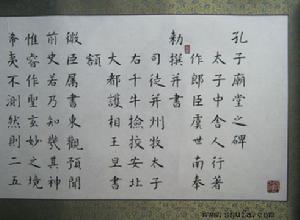 孔子廟堂之碑
太子中舍人行著
作郎臣虞世南奉
勑撰并書
司徒并州牧太子
右千牛撿挍安北
大都護相王旦書
額
微臣属書東觀預聞
前史若乃知幾其神
惟睿作聖玄妙之境
希夷不測然則二五